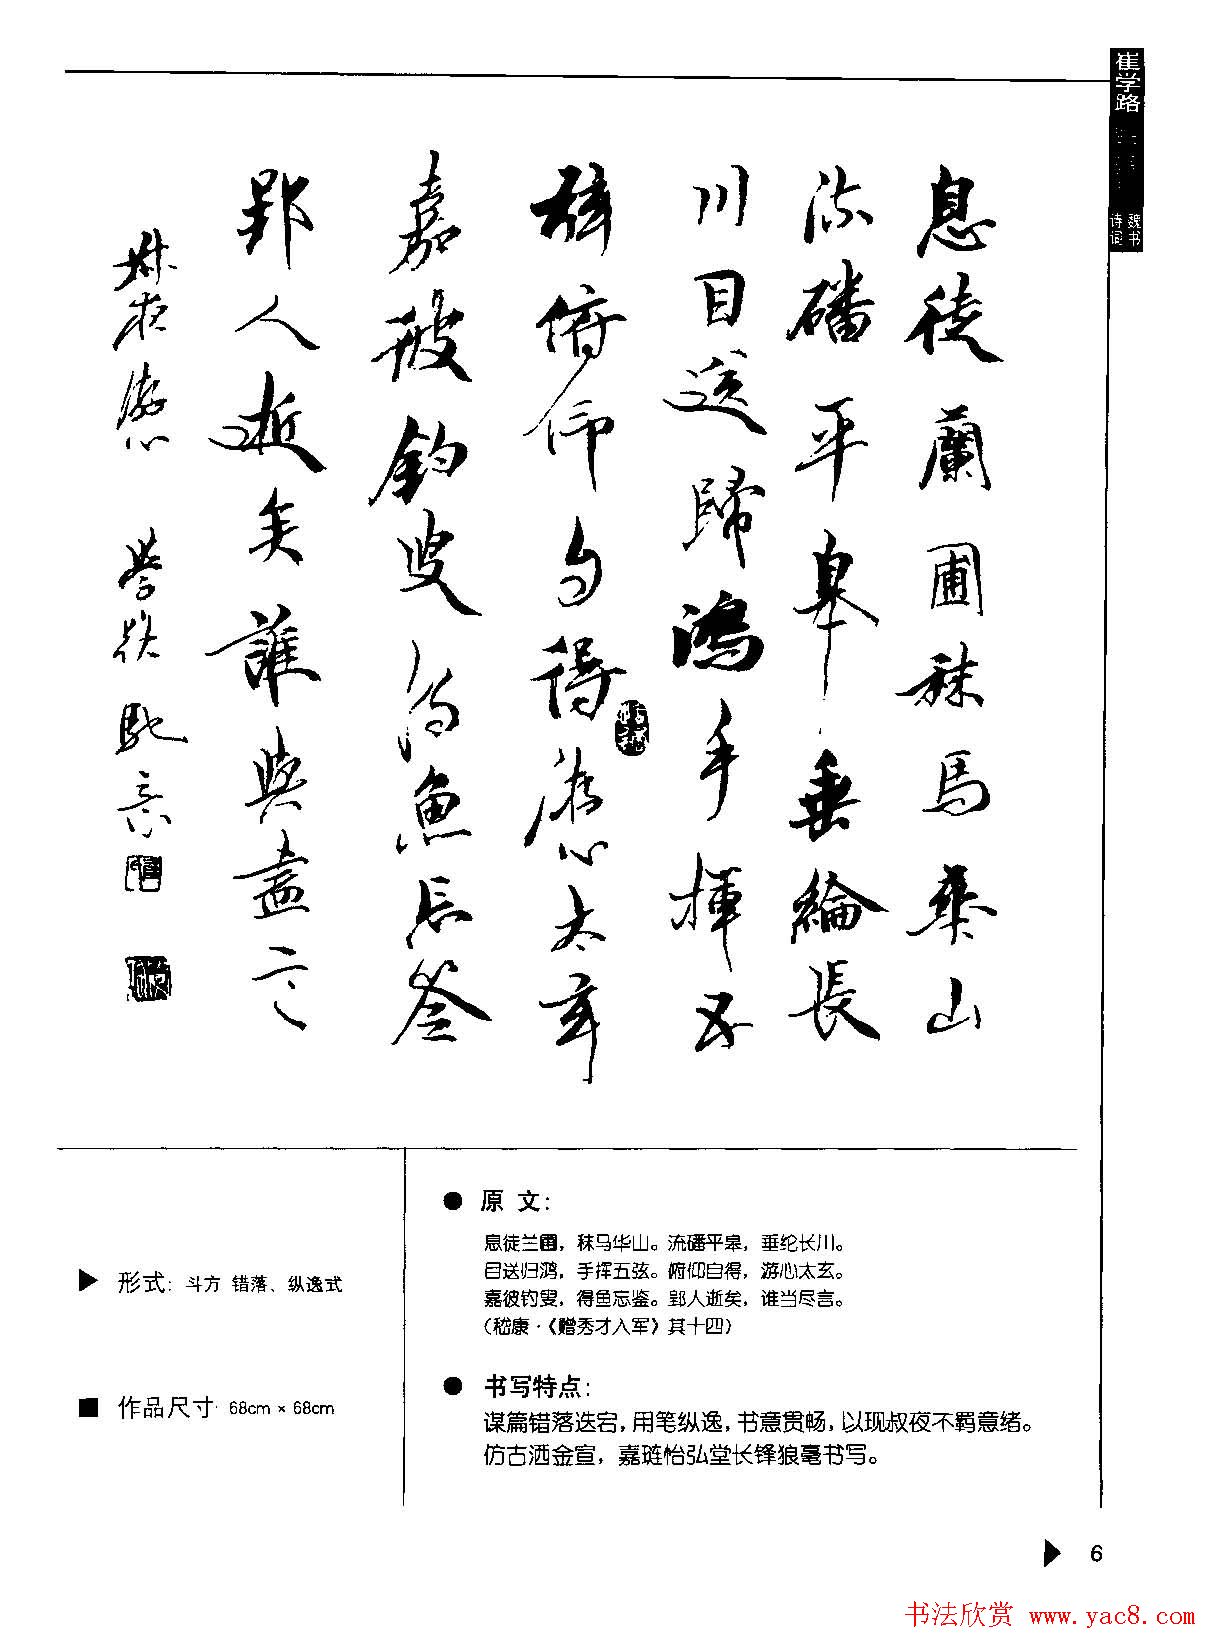 崔学路
魏书
诗词
息徒蘭圃秣馬華山
流磻平皋垂綸長
川目送歸鴻手揮五
弦俯仰自得游心太玄
嘉彼釣叟得魚忘筌
郢人逝矣誰與盡言
叔夜游心 學路
形式: 斗方 错落、纵逸式
作品尺寸· 68cm × 68cm
● 原 文:
息徒兰圃，秣马华山。流磻平皋，垂纶长川。
目送归鸿，手挥五弦。俯仰自得，游心太玄。
嘉彼钓叟，得鱼忘鉴。郢人逝矣，谁当尽言。
(嵇康·《赠秀才入军》其十四)
● 书写特点:
谋篇错落迭宕,用笔纵逸,书意贯畅,以现叔夜不羁意绪。
仿古洒金宣，嘉琏怡弘堂长锋狼毫书写。
6
书法欣赏 www.yac8.com